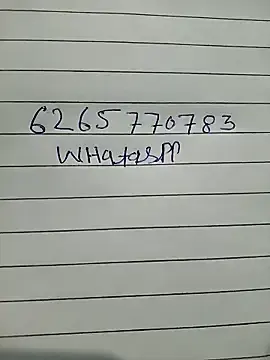 6265770783
WHatasPP